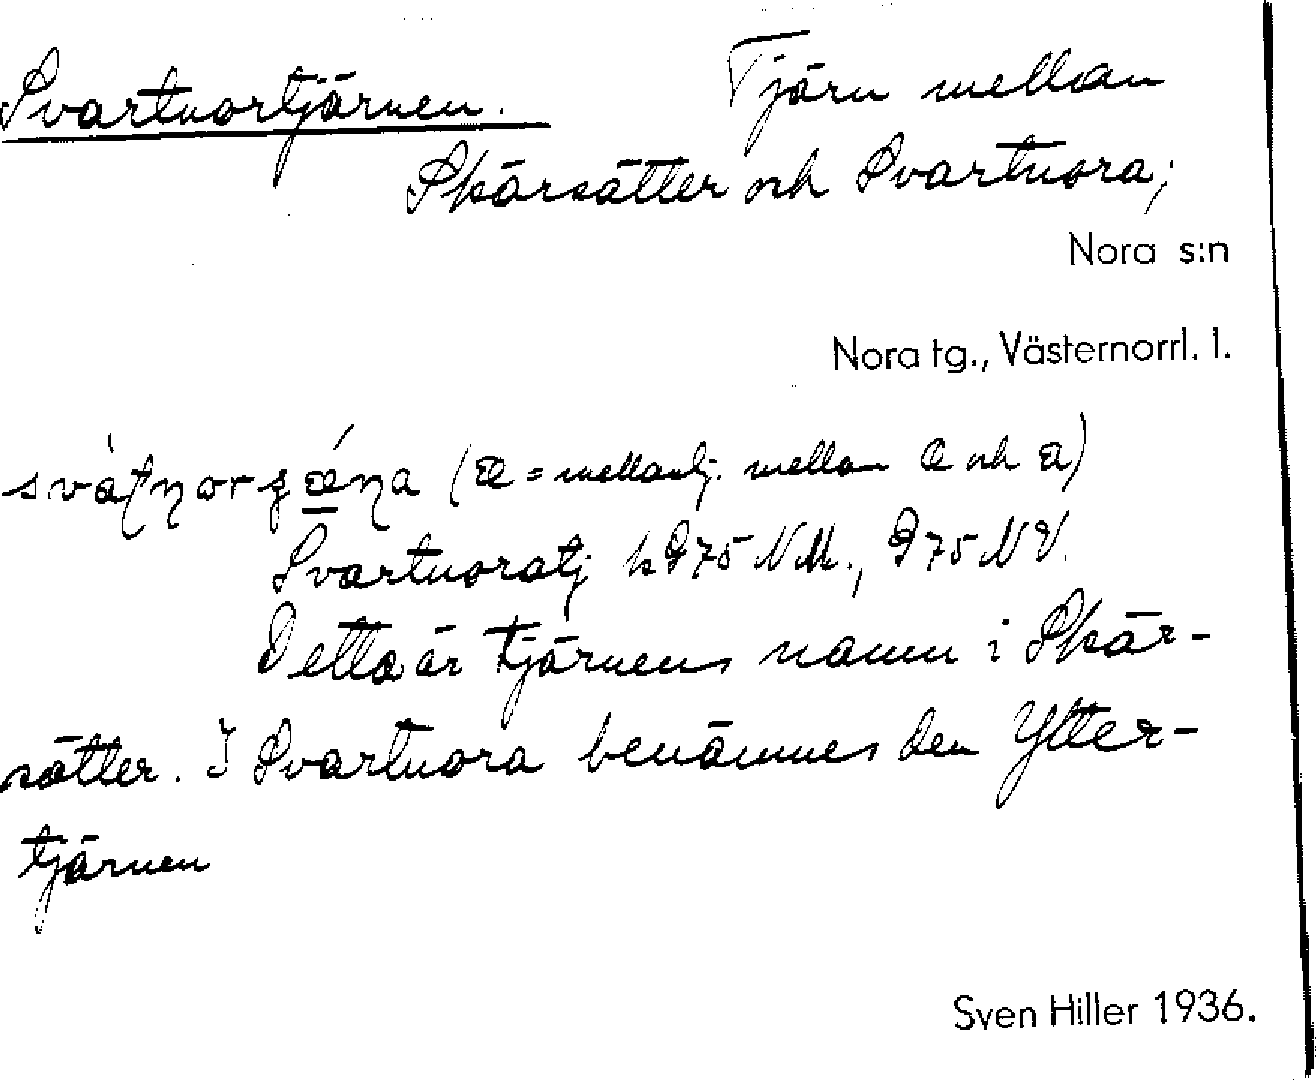 Svartnortjärnen. Tjärn mellan
Skärsätter och Svartnora;
Nora s:n
Nora tg., Västernorrl. l.
(æ = mellanlj. mellan a och ä)
Svartnoratj k 975 NM., 975 NV.
Detta är tjärnens namn i Skär-
sätter. I Svartnora benämnes den Ytter-
tjärnen
Sven Hiller 1936.